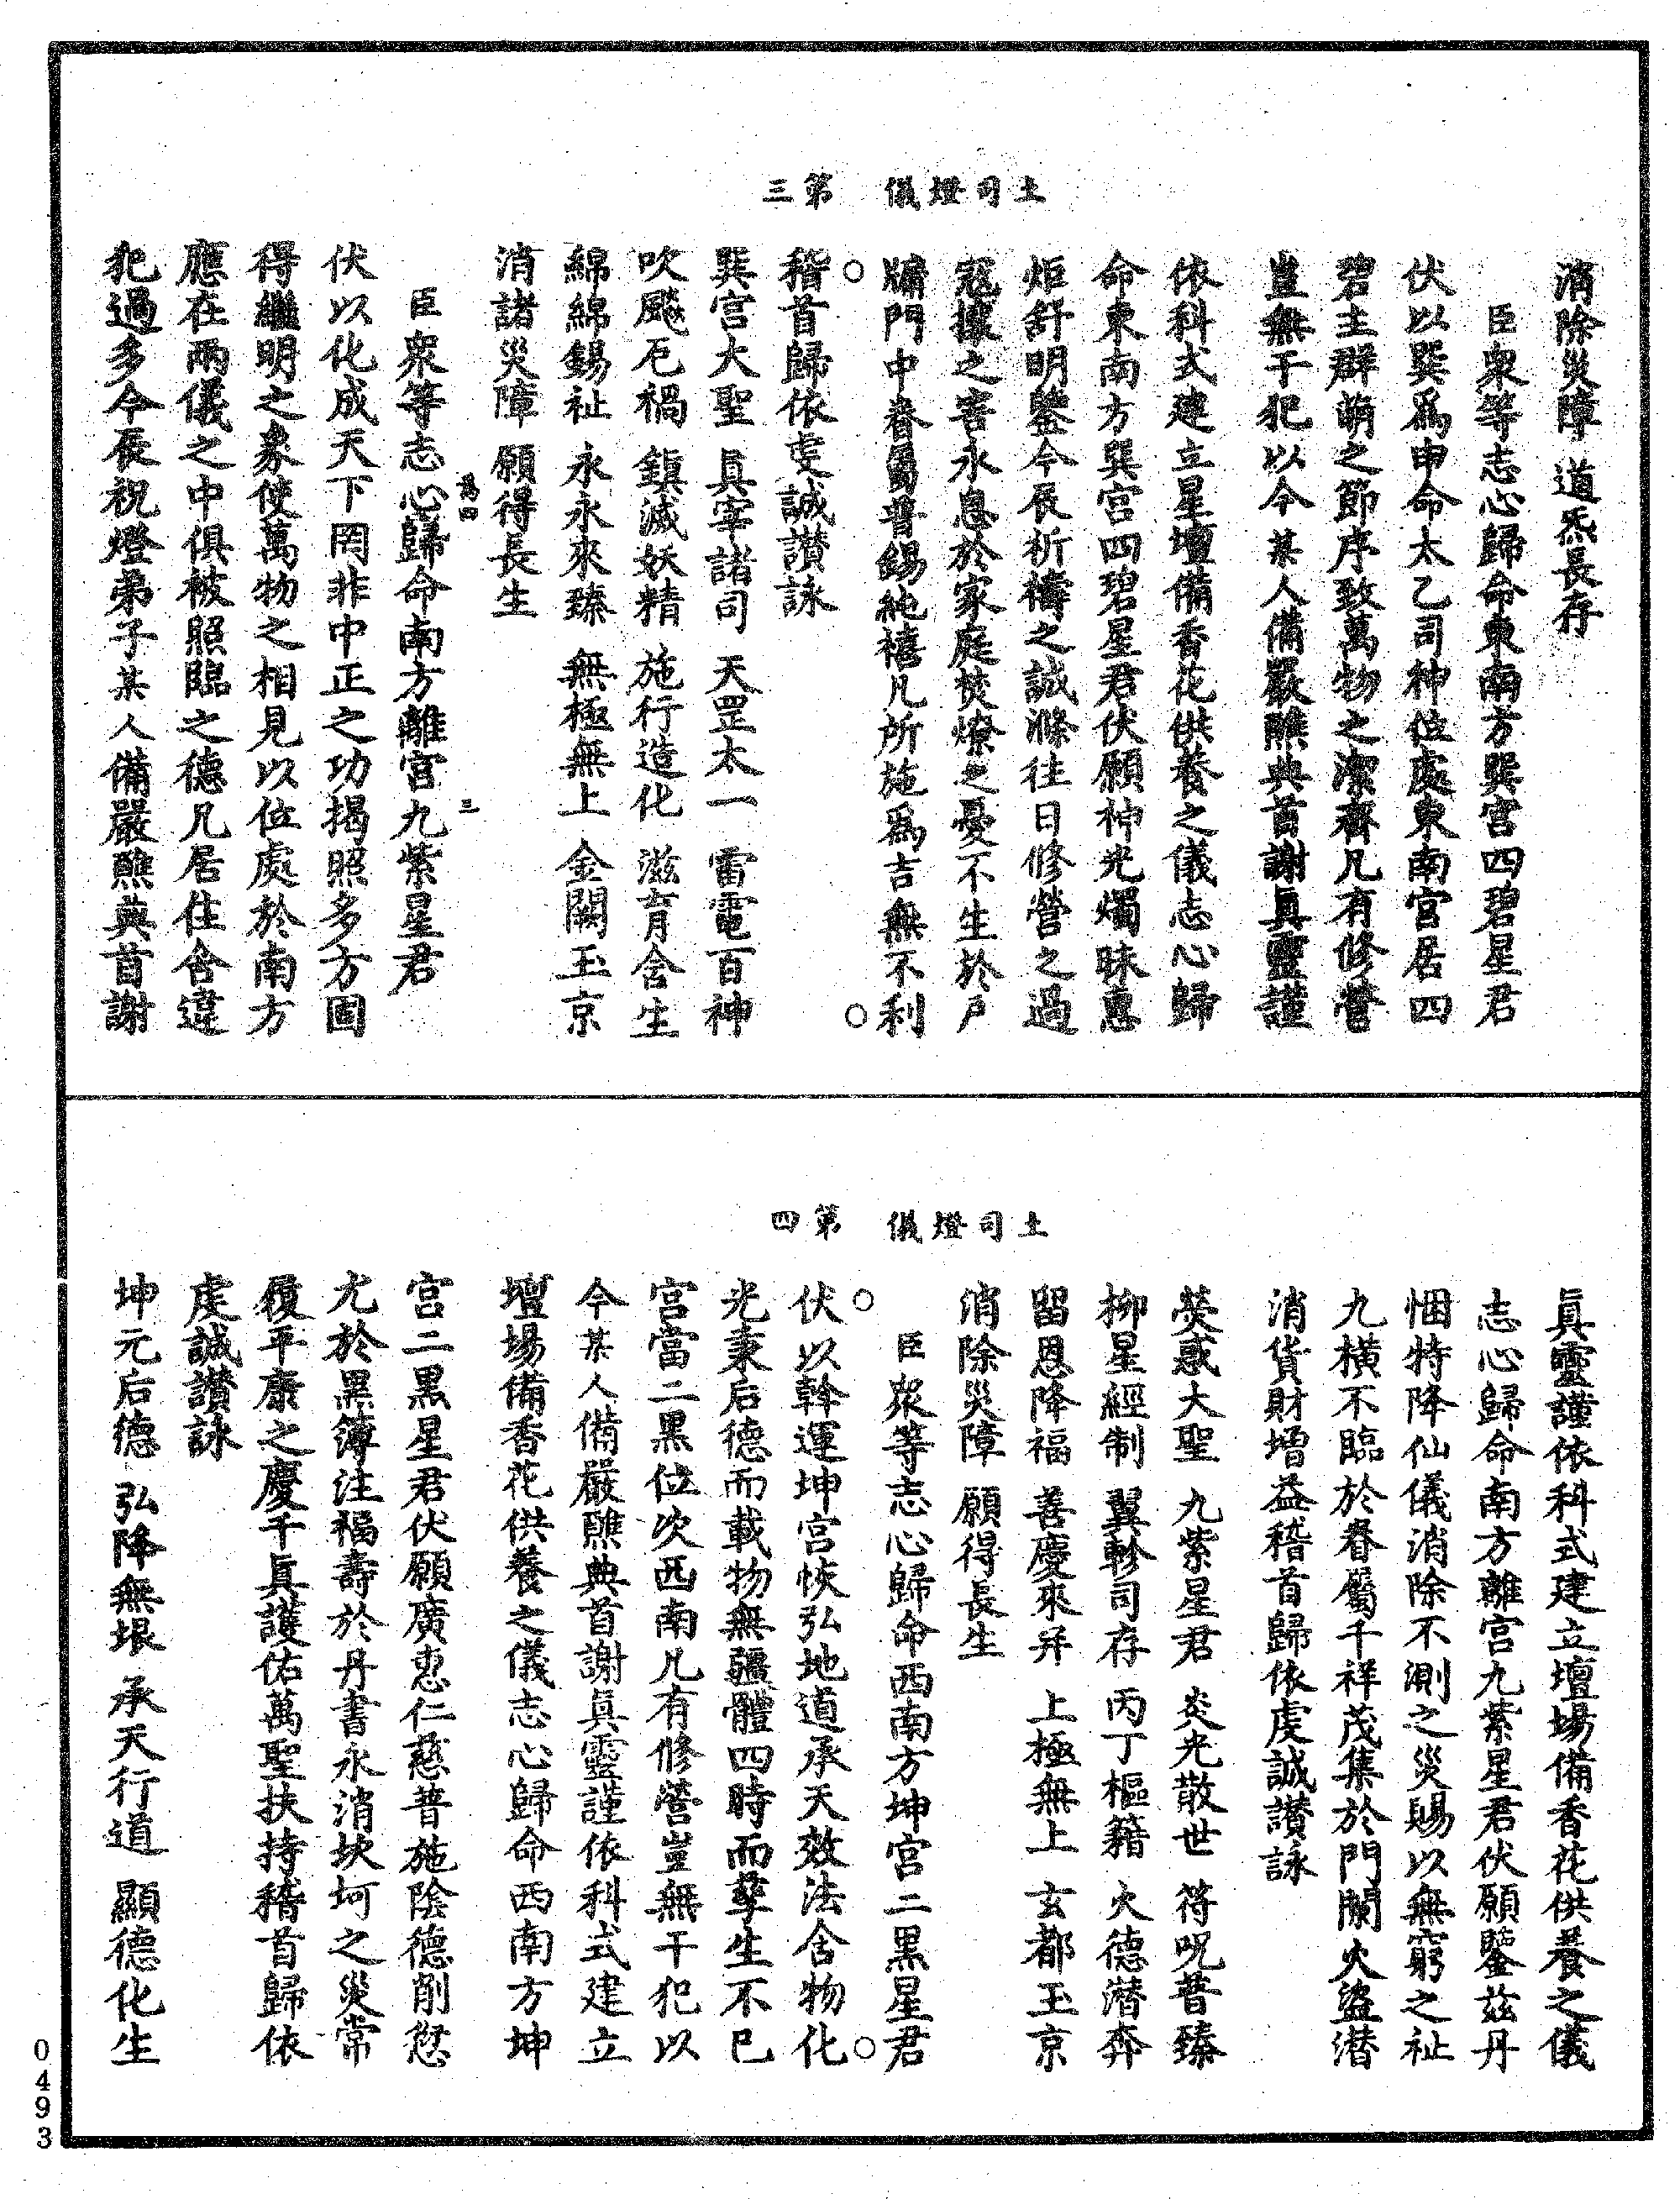 土司燈儀　第三
消除災障　道炁長存
臣衆等志心歸命東南方巽宮四碧星君
伏以巽爲申命太乙司神位處東南宮居四
碧主群萌之節序致萬物之潔齊凡有修營
豈無干犯以今某人備嚴醮典首謝眞靈謹
依科式建立星壇備香花供養之儀志心歸
命東南方巽宮四碧星君伏願神光燭昧惠
炬舒明鑒今辰祈禱之誠滌往日修營之過
寇攘之害永息於家庭焚燎之憂不生於戶
牖門中眷屬普錫純禧凡所施爲吉無不利
稽首歸依虔誠讃詠
巽宮大聖　眞宰諸司　天罡太一　雷電百神
吹飈厄禍　鎮滅妖精　施行造化　滋育含生
綿綿錫祉　永永來臻　無極無上　金闕玉京
消諸災障　願得長生
臣衆等志心歸命南方離宮九紫星君
爲四　三
伏以化成天下罔非中正之功揭照多方固
得繼明之象使萬物之相見以位處於南方
應在兩儀之中俱被照臨之德凡居住舍違
犯過多今辰祝燈弟子某人備嚴醮典首謝
土司燈儀　第四
眞靈謹依科式建立壇場備香花供養之儀
志心歸命南方離宮九紫星君伏願鑒茲丹
悃特降仙儀消除不測之災賜以無窮之祉
九橫不臨於眷屬千祥茂集於門闌火盜潜
消貨財增益稽首歸依虔誠讃詠
熒惑大聖　九紫星君　炎光散世　符呪普臻
柳星經制　翼軫司存　丙丁樞籍　火德潜奔
留恩降福　善慶來并　上極無上　玄都玉京
消除災障　願得長生
臣衆等志心歸命西南方坤宮二黒星君
伏以斡運坤宮恢弘地道承天效法含物化
光秉后德而載物無疆體四時而孳生不已
宮當二黒位次西南凡有修營豈無干犯以
今某人備嚴醮典首謝眞靈謹依科式建立
壇場備香花供養之儀志心歸命西南方坤
宮二黒星君伏願廣惠仁慈普施陰德削愆
尤於黒簿注福壽於丹書永消坎坷之災常
履平康之慶千眞護佑萬聖扶持稽首歸依
虔誠讃詠
坤元后德　弘降無垠　承天行道　顯德化生
0493